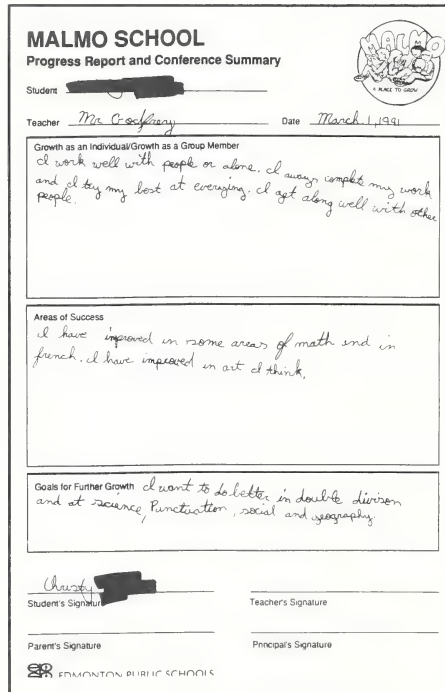 MALMO SCHOOL
Progress Report and Conference Summary
MALMO
A PLACE TO GROW
Student
Teacher Mr. Godfrery Date March 1, 1991
Growth as an Individual/Growth as a Group Member
I work well with people or alone. I aways complete my work
and I try my best at everying. I get along well with other
people.
Areas of Success
I have improved in some areas of math end in
french. I have improved in art I think.
Goals for Further Growth I want to do better in double divison
and at science, Punctuation, social and geography.
Christy
Student's Signature Teacher's Signature
Parent's Signature Principal's Signature
EDMONTON PUBLIC SCHOOLS